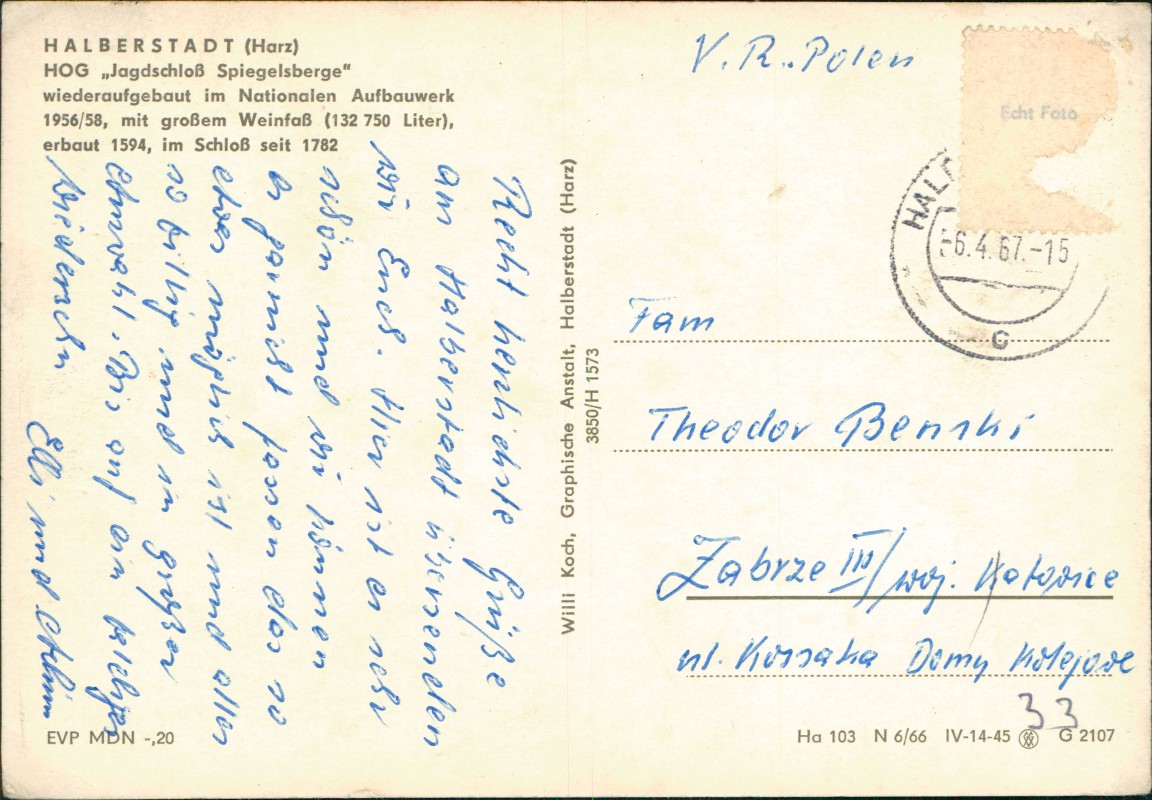 HALBERSTADT (Harz)
HOG „Jagdschloß Spiegelsberge“
wiederaufgebaut im Nationalen Aufbauwerk
1956/58, mit großem Weinfaß (132 750 Liter),
erbaut 1594, im Schloß seit 1782
Recht herzlichste Grüße
aus Halberstadt übersenden
wir Euch. Hier ist es sehr
schön und wir können
es garnicht fassen das so
etwas möglich ist und alles
so billig und in großer
Auswahl. Bis auf ein baldiges
Wiedersehn
Elli und Achim
EVP MDN -,20
Willi Koch, Graphische Anstalt, Halberstadt (Harz)
3850/H 1573
V. R. Polen
Echt Foto
HAL
-6.4.67.-15
c
Fam
Theodor Benski
Zabrze III/woj. Katowice
ul. Kossaka Domy Kolejowe
33
Ha 103 N 6/66 IV-14-45 G 2107